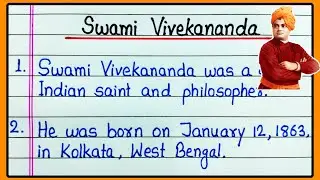 Swami Vivekananda
1. Swami Vivekananda was a
Indian saint and philosopher.
2. He was born on January 12, 1863,
in Kolkata, West Bengal.